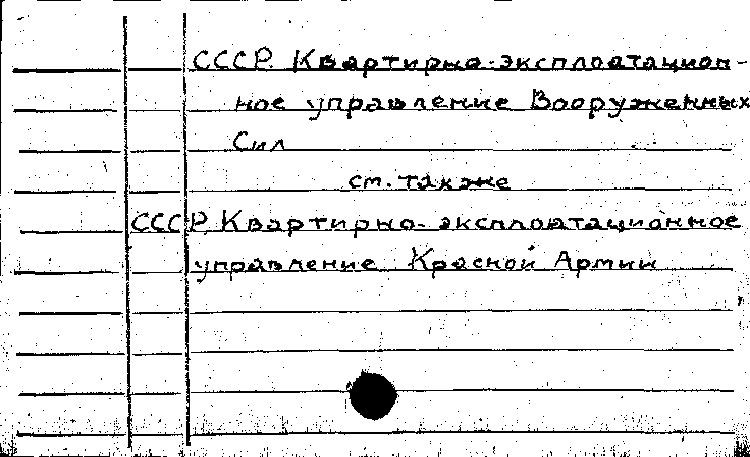 СССР. Квартирно-эксплоатацион-
ное управление Вооруженных
Сил
см. также
СССР. Квартирно-эксплоатационное
управление Красной Армии